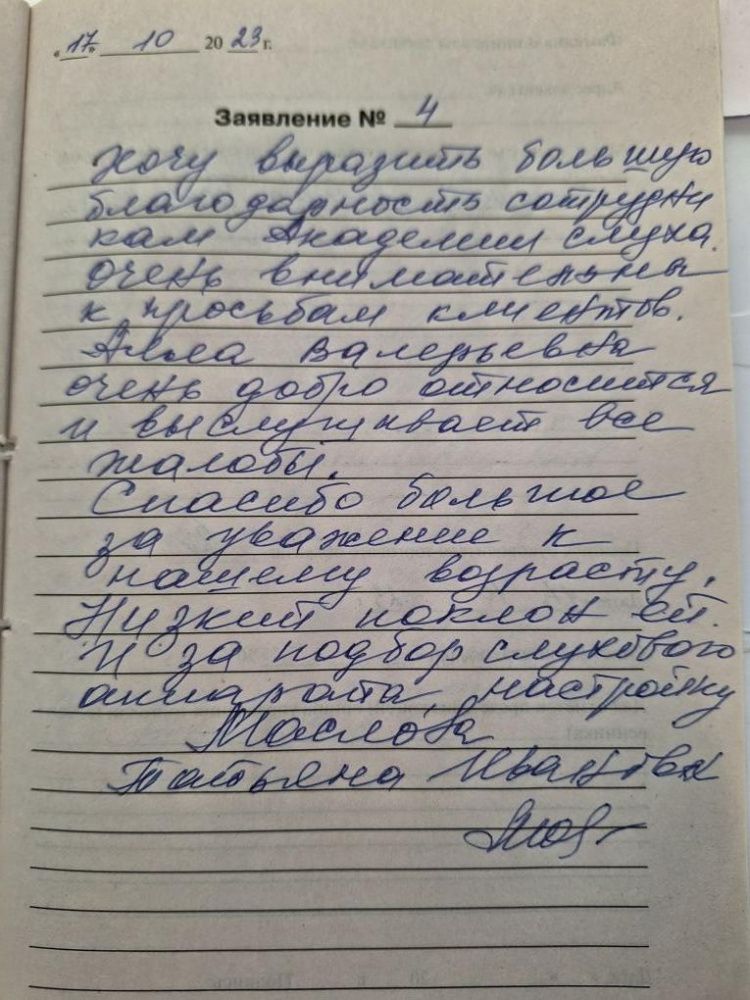 «17» 10 2023 г.
Заявление № 4
Хочу выразить большую
благодарность сотрудни
кам Академии слуха.
очень внимательны
к просьбам клиентов.
Алла Валерьевна
очень добро относится
и выслушивает все
жалобы.
Спасибо большое
за уважение к
нашему возрасту.
Низкий поклон ей.
И за подбор слухового
аппарата, настройку
Маслова
Татьяна Ивановн